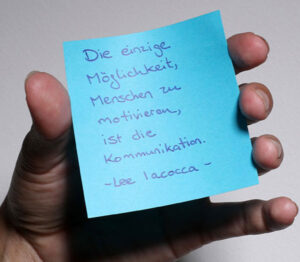 Die einzige
Möglichkeit,
Menschen zu
motivieren,
ist die
Kommunikation.
-Lee Iacocca-